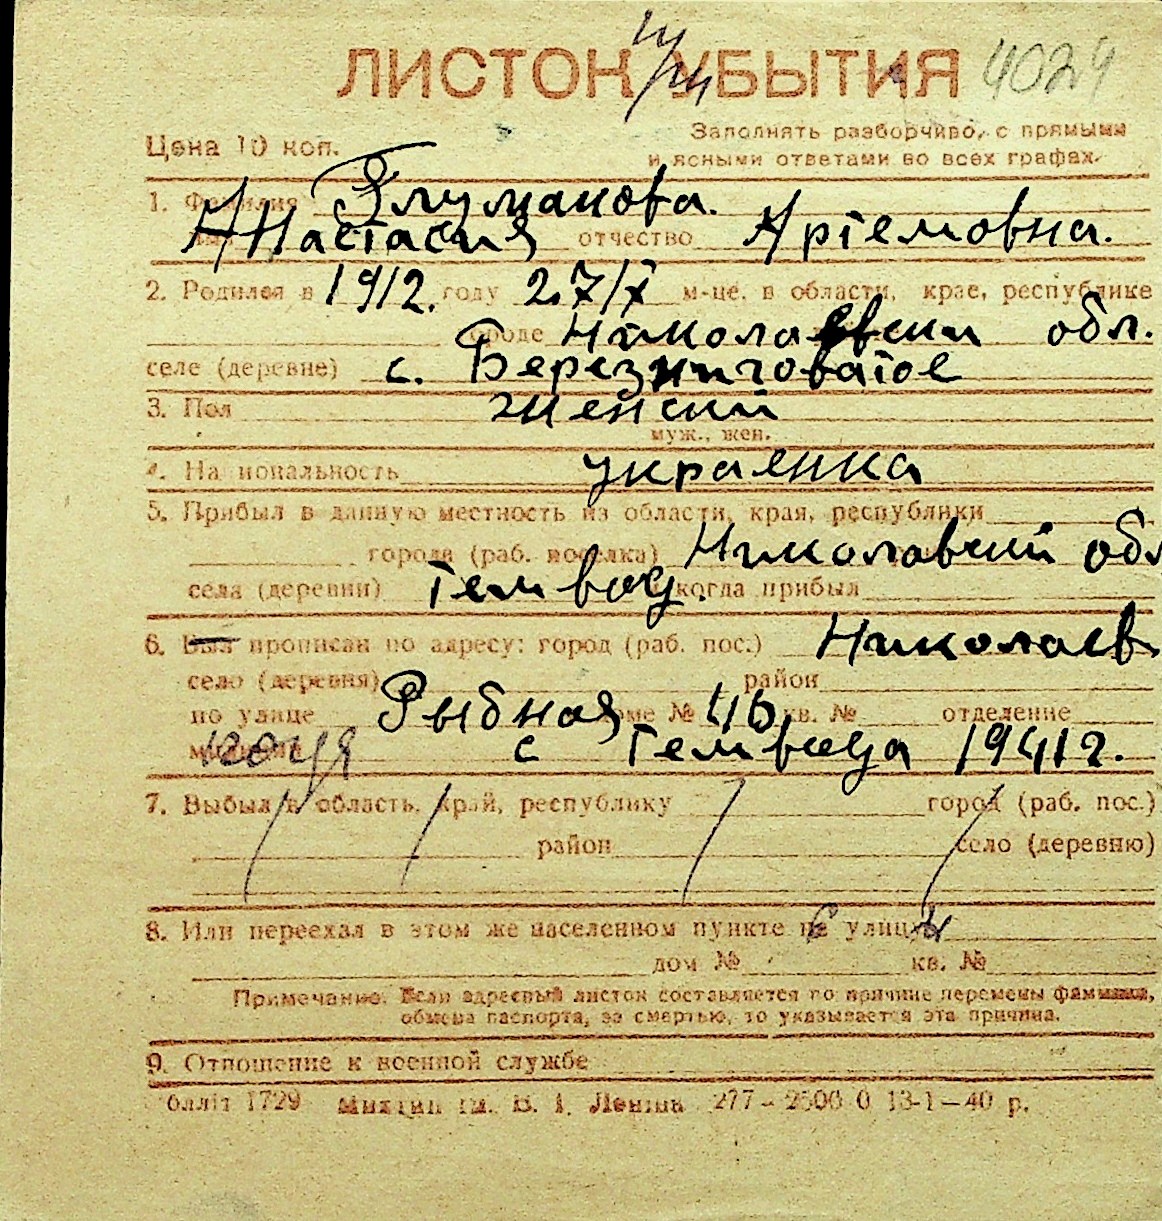 ЛИСТОК УБЫТИЯ 4024
Цена 10 коп.
Заполнять разборчиво, с прямыми
и ясными ответами во всех графах.
1. Фамилия Глумакова.
Анастасия отчество Артемовна.
2. Родился в 1912. году 27/X м-це, в области, крае, республике
городе Николаевски обл.
селе (деревне) с. Березниговатое
3. Пол женский
муж., жен.
4. Национальность украенка
5. Прибыл в данную местность из области, края, республики
города (раб. поселка) Николавский обл
села (деревни) когда прибыл
6. Был прописан по адресу: город (раб. пос.) Николаев
село (деревня) район
по улице Рыбная доме № кв. № отделение
милиции с 1941 г.
7. Выбыл в область, край, республику город (раб. пос.)
район село (деревню)
8. Или переехал в этом же населенном пункте на улицу
дом № кв. №
Примечание. Если адресный листок составляется по причине перемены фамилии,
обмена паспорта, за смертью, то указывается эта причина.
9. Отношение к военной службе
1729 Ленина 277–2500 0 13-1–40 р.